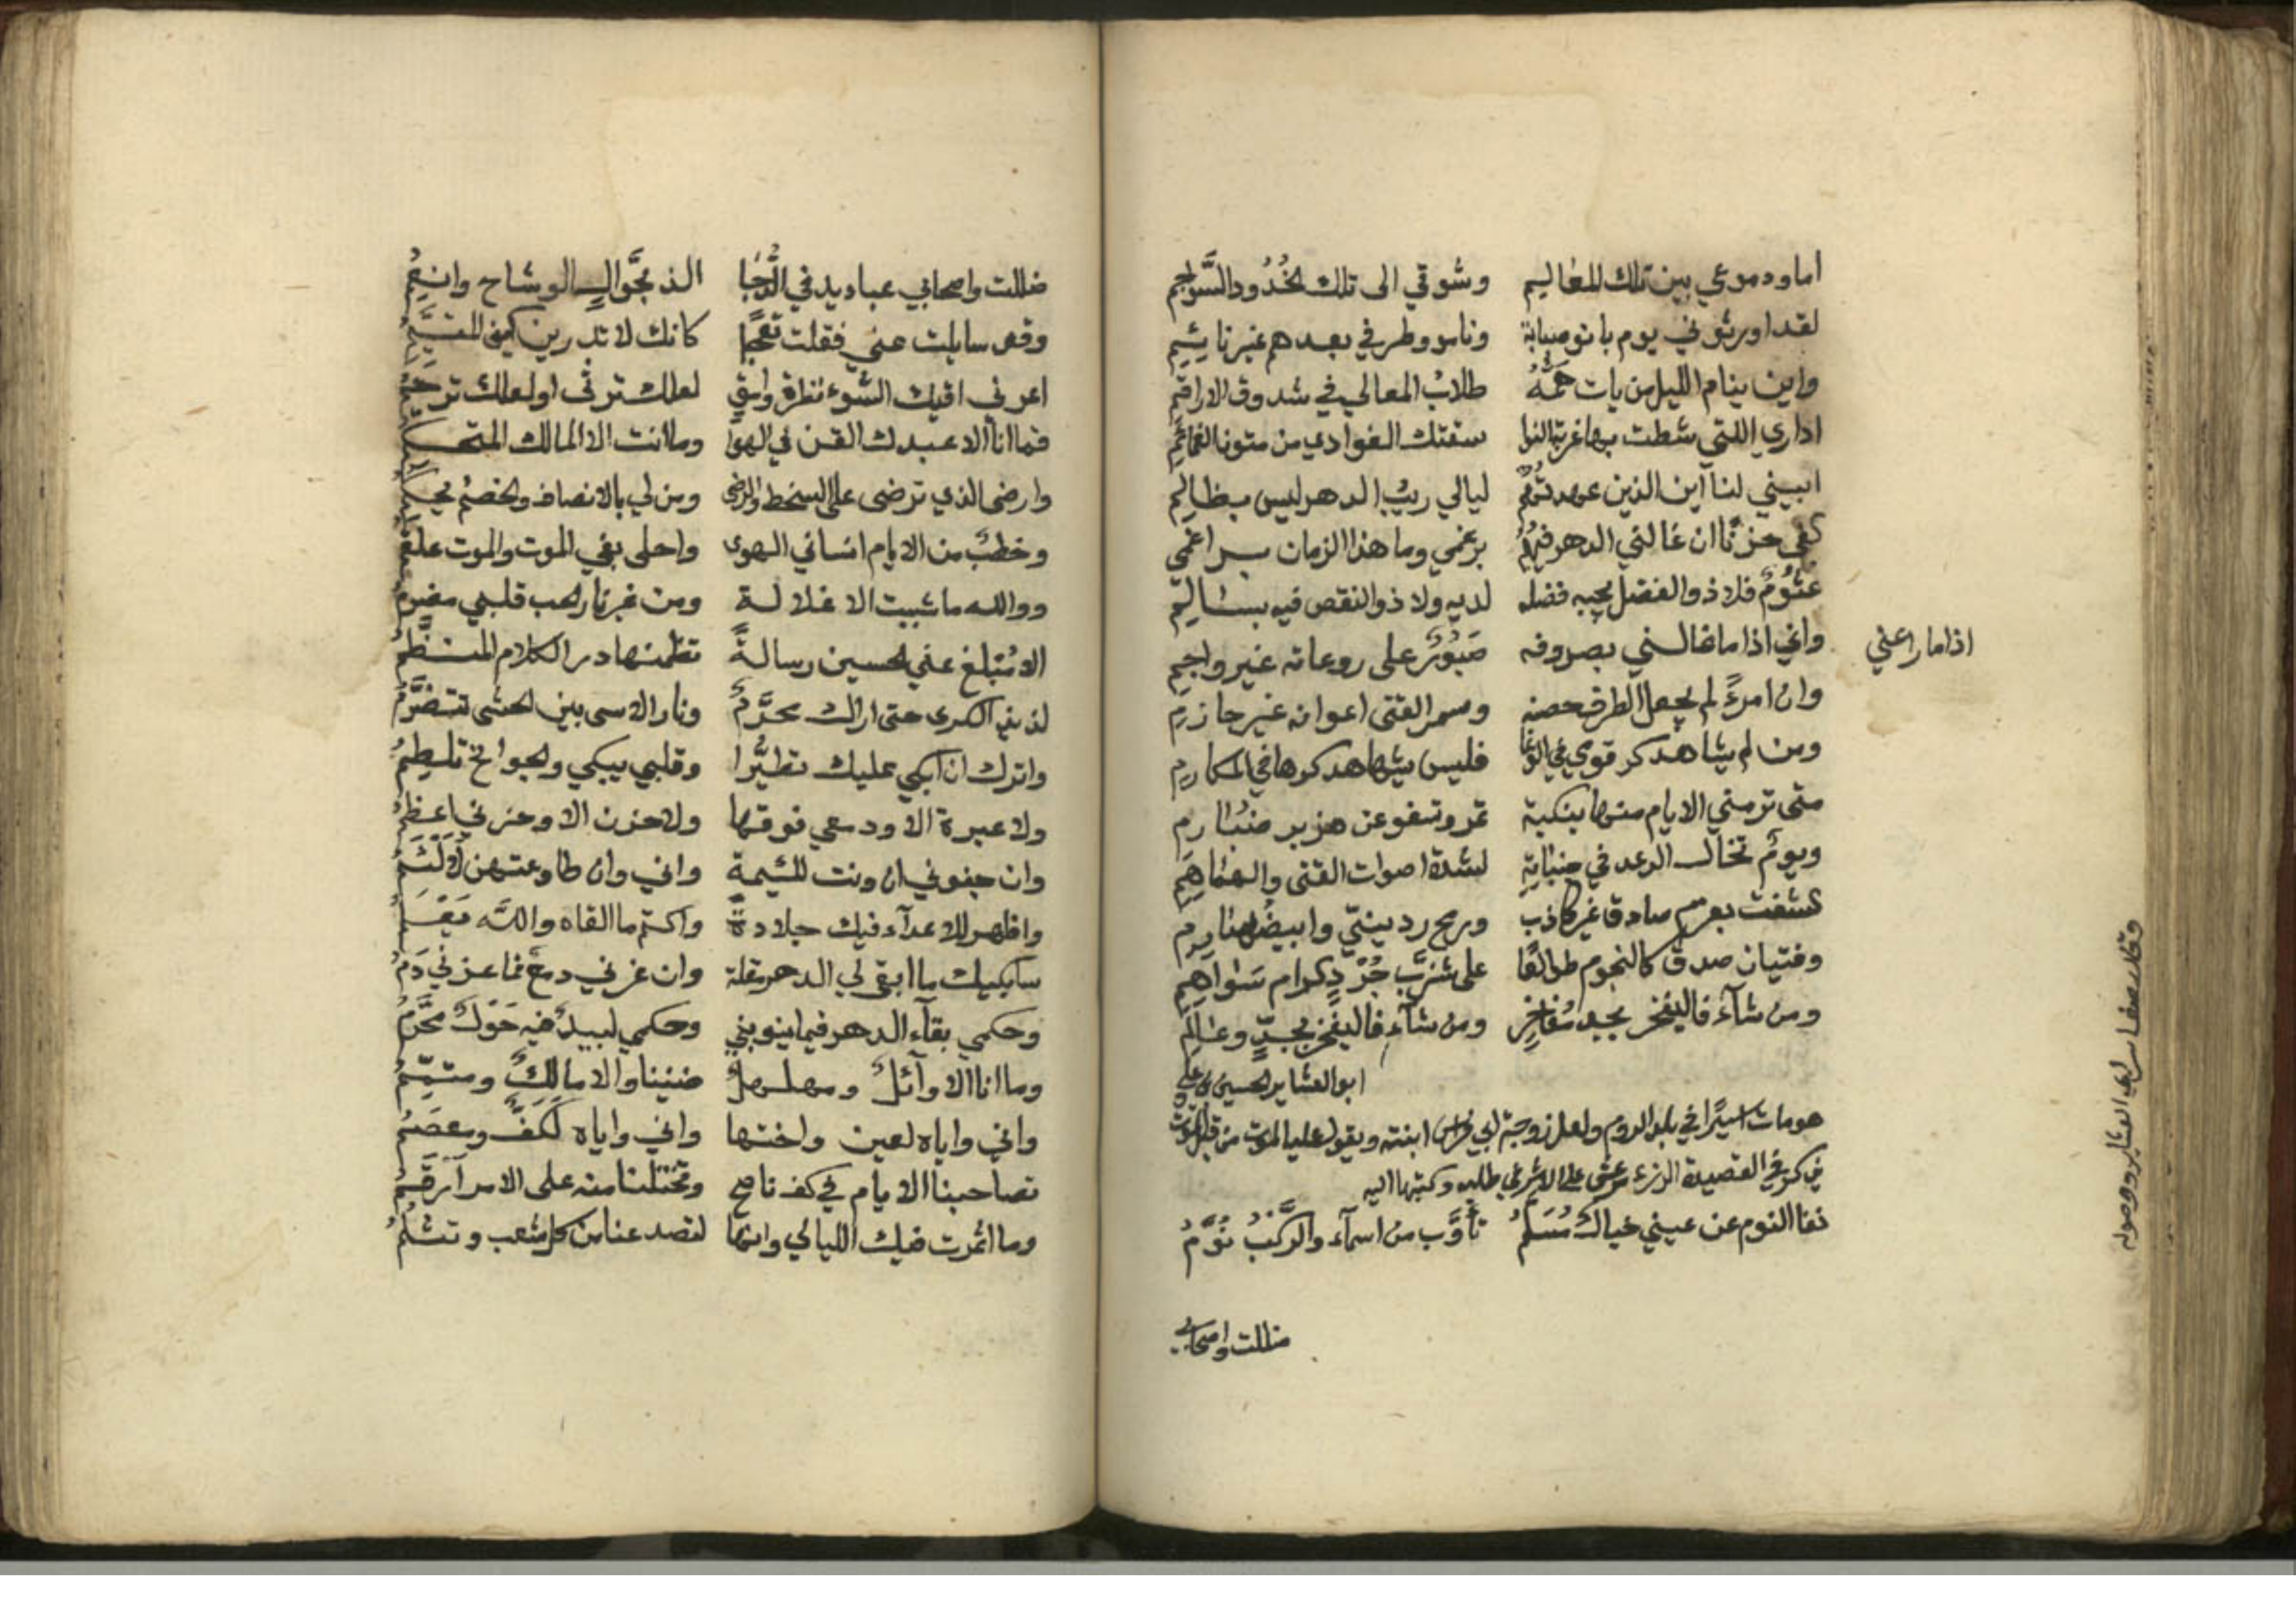 اما ودموعي بين تلك المعاليم وشوقي الى تلك الخُدُود السَّواجم
لقد اورثوني يوم بانو صبابة وناموا وطرفي بعدهم غير نايم
واين ينام الليل من بات همّهُ طلابُ المعالي في شدوق الاراقم
اداري اللتي شطت بها غربة النوا سقتك الغوادي من متون الغمائم
ابيني لنا اين الذين عهدتهُم ليالي ريبُ الدهر ليس بظالم
كفى حزنًا ان غالني الدهر فيهُم برغمي وما هذا الزمان براغمي
غشومٌ فلا ذو الفضل يحييه فضله لديه ولا ذو النقص فيه بسالم
واني اذا ما غالني بصروفه صَبُورٌ على روعاته غير واجم
اذا ما راعني
وان امرءً لم يجعل الطرف حصنه وسمر الفتى اعوانه غير حازم
ومن لم يشاهد كر قومي في الوغا فليس يشاهد كرها في المكارم
متى ترمني الايام منها بنكبة تمر وتسفو عن هزبر ضبارم
ويومٌ تخال الرعد في جنباته لشدة اصوات القنى والهماهم
كشفت بعزم صادق غير كاذب ورمح رديني وابيض صارم
وفتيان صدق كالنجوم طوالعًا على شزَّب جُرْدٍ كرام سَواهم
ومن شاء فاليفخر بجد مُفاخر ومن شاء فاليفخر بجدّ وعالم
ابو العشاير الحسين بن علي
هو مات اسيرًا في بلد الروم ولعل زوجة ابي فراس ابنته ويقول عليا
في القصيدة وكتبها اليه
نفا النوم عن عيني خيالٌ مُسَلمُ تأوَّب من اسماء والركبُ نُوَّمُ
ظللت واصحابي
وقال يصف اسر ابي العشاير ووصوله
ظللت واصحابي عباديد في الدُّجا الذ بجوّال الوشاح وانعمُ
وقد سايلت عني فقلت تعجبًا كانك لا تدرين كيف المتيَّمُ
اعرني اقيك السّوء نظرة وامق لعلك ترثي او لعلك ترحمُ
فما انا الا عبدك القن في الهوا وما انت الا المالك المتحكمُ
وارضى الذي ترضى على السخط والرضى ومن لي بالانصاف والخصمُ يحكم
وخطبٌ من الايام انساني الهوى واحلى بفي الموت والموت علقمُ
ووالله ما شبيت الا غلالة ومن غير نار الحب قلبي مضرم
الا مُبْلغ عني الحسين رسالةً تظمنها در الكلام المنظَّمُ
لذيذ الكرى حتى اراك محرَّمٌ ونار الاسى بين الحشى تتضرَّمُ
واترك ان ابكي عليك تطيُّرا وقلبي يبكي والجوانح تلطمُ
ولا عبرة الا ودمعي فوقها ولا حزن الا وحزني اعظمُ
وان جفوني ان ونت للئيمة واني وان طاوعتهن لَألْئَمُ
واظهر للاعدآء فيك جلادةً واكتم ما القاه والله يَعْلَمُ
سابكيك ما ابقى لي الدهر مقلة وان عزني دمعٌ فما عزني دَمُ
وحكمي بقآء الدهر فيما ينوبني وحكمي لبيدٌ فيه حَوْلٌ محرَّمُ
وما انا الا وآئلٌ ومهلهلٌ ضنينا والا مالكٌ ومتمّمُ
واني واياه لعين واختها واني واياه لكفٌّ ومعصَمُ
تصاحبنا الايام في كف ناصح وتختلنا منه على الامر آرقَمُ
وما اغربت فيك الليالي وانها لتصدعنا من كل شعب وتشلمُ